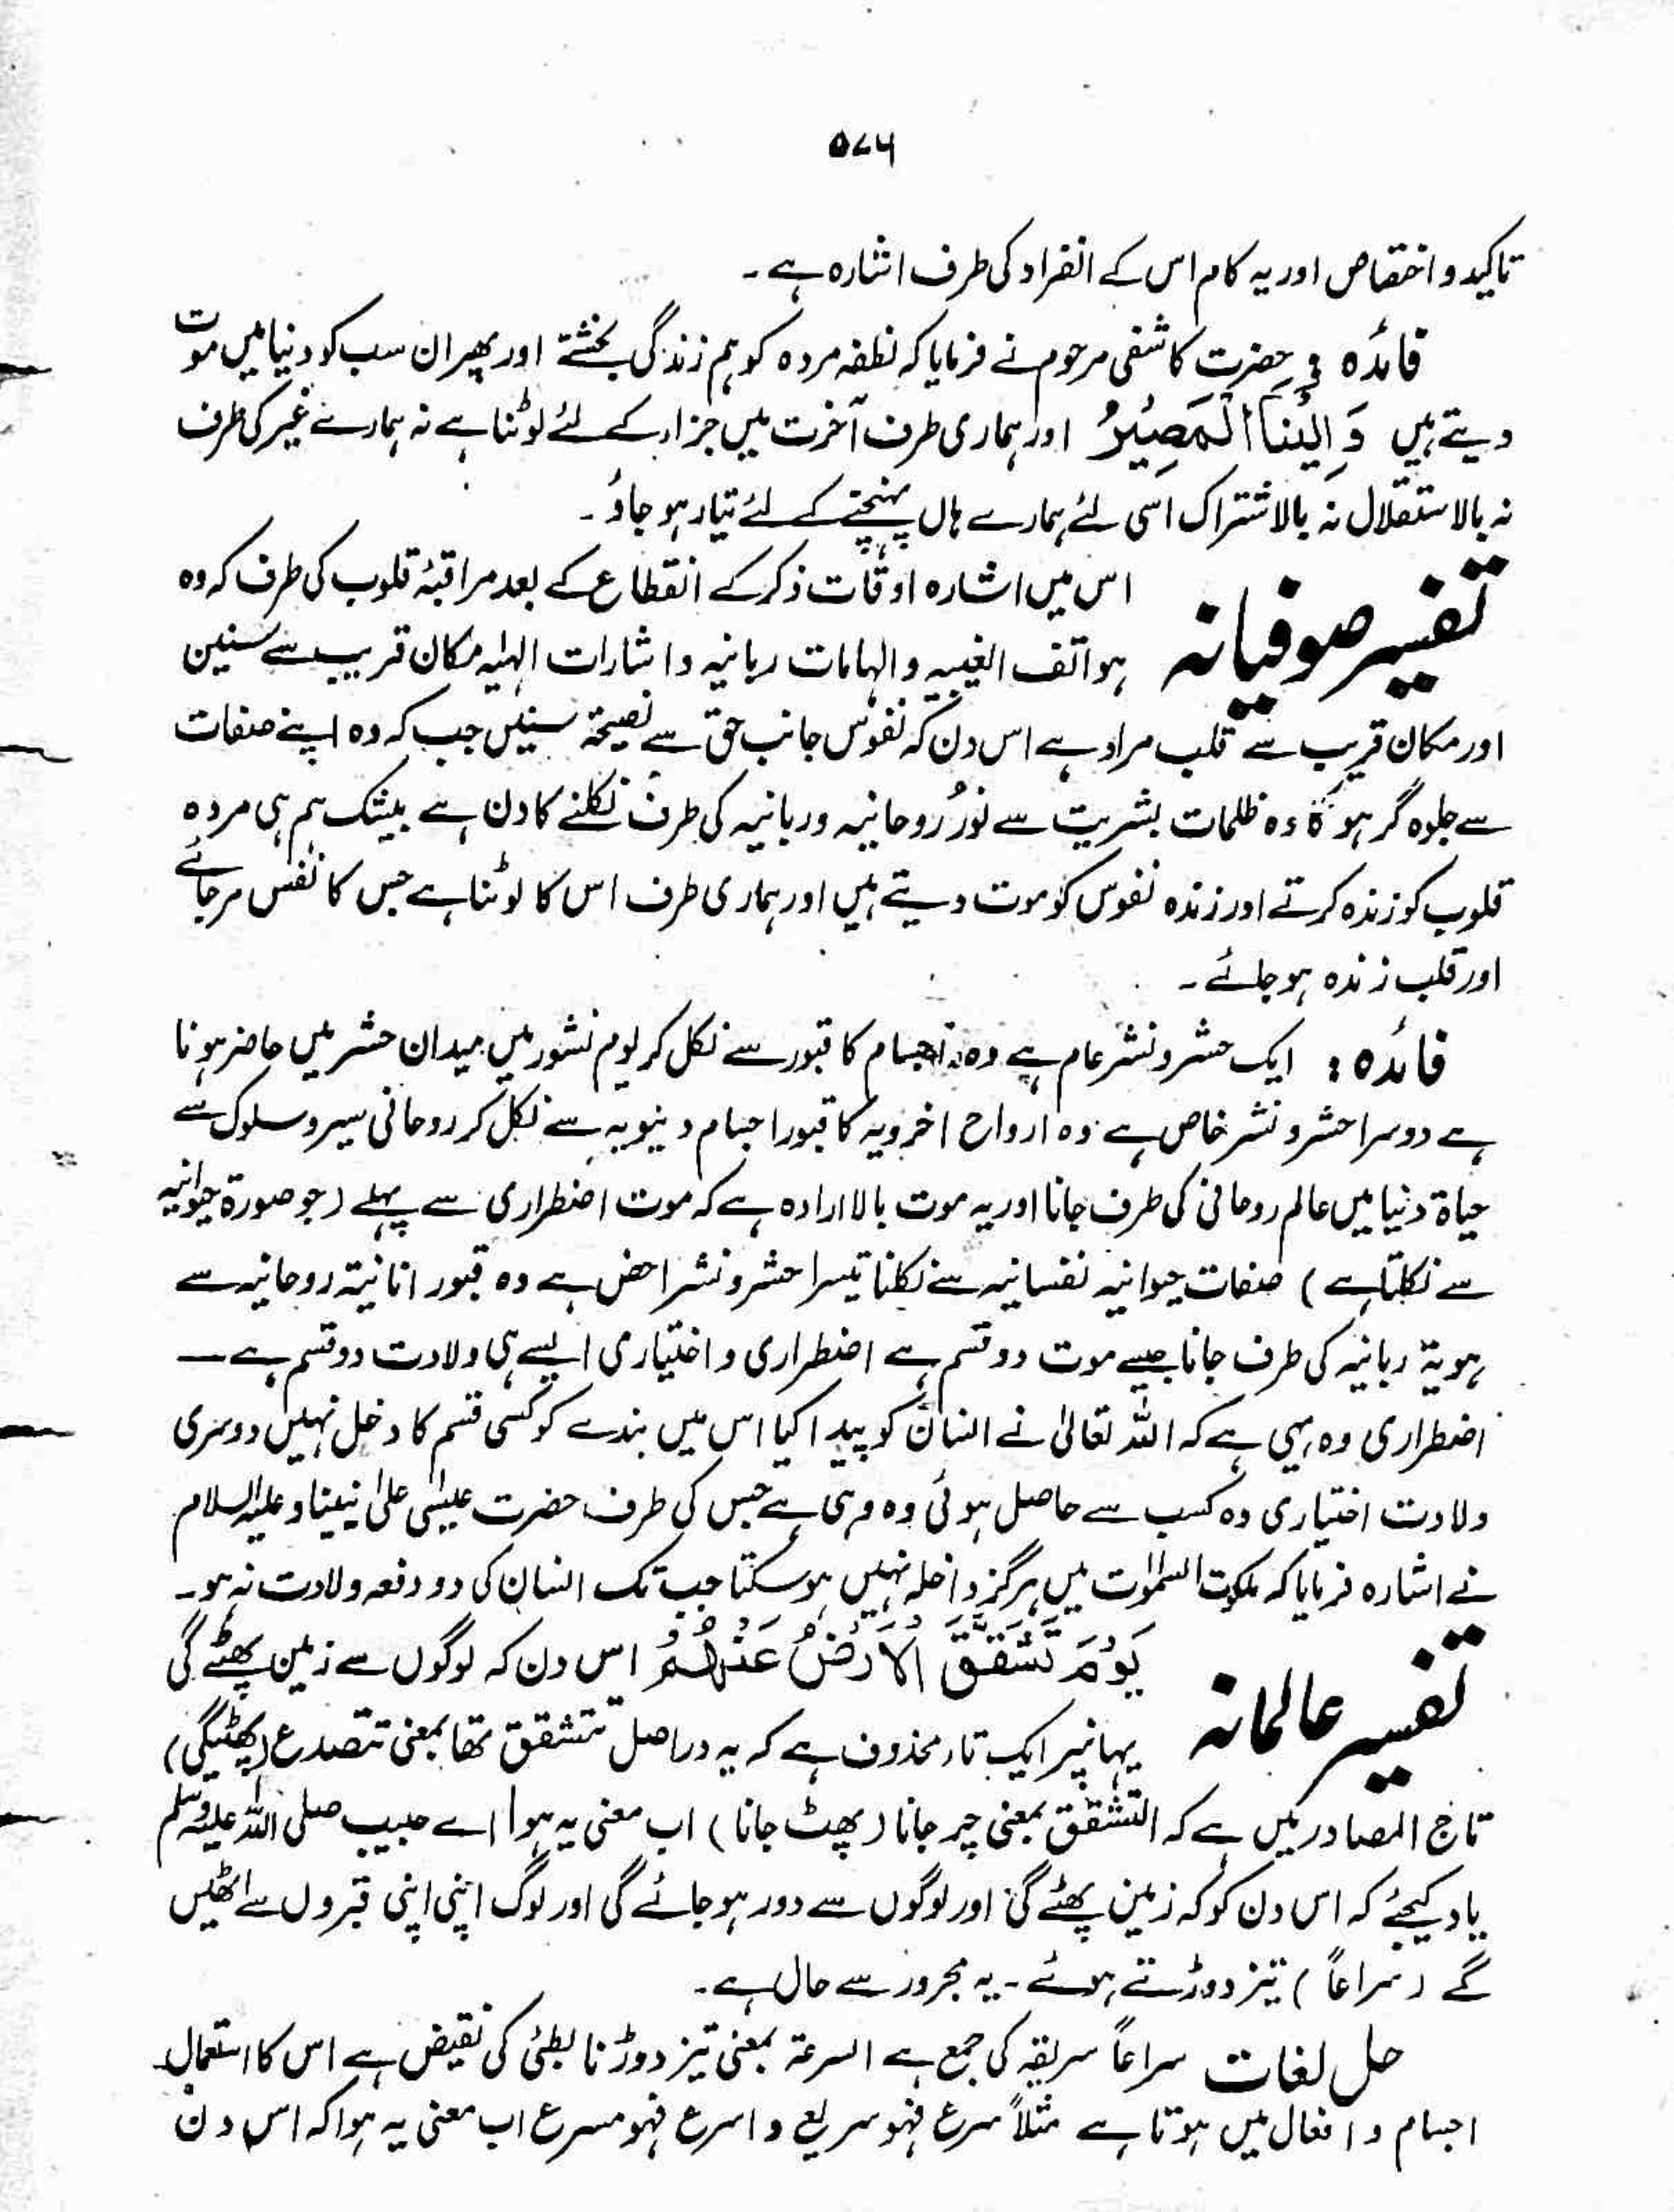 ۵۷۶
تاکید و اختصاص اور یہ کام اس کے انفراد کی طرف اشارہ ہے ۔
فائدہ : حضرت کاشفی مرحوم نے فرمایا کہ نطفہ مردہ کو ہم زندگی بخشتے اور پھر ان سب کو دنیا میں موت
دیتے ہیں وَ اِلَیْنَا الْمَصِیْرُ اور ہماری طرف آخرت میں جزاء کے لئے لوٹنا ہے نہ ہمارے غیر کی طرف
نہ بالاستقلال نہ بالاشتراک اسی لئے ہمارے ہاں پہنچنے کے لئے تیار ہو جاؤ ۔
تفسیر صوفیانہ اس میں اشارہ اوقات ذکر کے انقطاع کے بعد مراقبۂ قلوب کی طرف کہ وہ
ہواتف الغیبیہ و الہامات ربانیہ و اشارات الٰہیہ مکان قریب سے سنیں
اور مکان قریب سے قلب مراد ہے اس دن کہ نفوس جانب حق سے نصیحۃ سنیں جب کہ وہ اپنے صفات
سے جلوہ گر ہو گا وہ ظلمات بشریت سے نور روحانیہ و ربانیہ کی طرف نکلنے کا دن ہے بیشک ہم ہی مردہ
قلوب کو زندہ کرتے اور زندہ نفوس کو موت دیتے ہیں اور ہماری طرف اس کا لوٹنا ہے جس کا نفس مر جائے
اور قلب زندہ ہو جائے ۔
فائدہ : ایک حشر و نشر عام ہے وہ اجسام کا قبور سے نکل کر یوم نشور میں میدان حشر میں حاضر ہونا
ہے دوسرا حشر و نشر خاص ہے وہ ارواح اخرویہ کا قبور اجسام دنیویہ سے نکل کر روحانی سیر و سلوک سے
حیاۃ دنیا میں عالم روحانی کی طرف جانا اور یہ موت بالارادہ ہے کہ موت اضطراری سے پہلے (جو صورۃ حیوانیہ
سے نکلتا ہے) صفات حیوانیہ نفسانیہ سے نکلنا تیسرا حشر و نشر اخص ہے وہ قبور انانیۃ روحانیہ سے
ہویۃ ربانیہ کی طرف جانا جیسے موت دو قسم ہے اضطراری و اختیاری ایسے ہی ولادت دو قسم ہے —
اضطراری وہ یہی ہے کہ اللہ تعالیٰ نے انسان کو پیدا کیا اس میں بندے کو کسی قسم کا دخل نہیں دوسری
ولادت اختیاری وہ کسب سے حاصل ہوئی وہ وہی ہے جس کی طرف حضرت عیسٰی علیٰ نبینا و علیہ السلام
نے اشارہ فرمایا کہ ملکوت السمٰوٰت میں ہرگز داخلہ نہیں ہو سکتا جب تک انسان کی دو دفعہ ولادت نہ ہو ۔
تفسیر عالمانہ یَوْمَ تَشَقَّقُ الْاَرْضُ عَنْهُمْ اس دن کہ لوگوں سے زمین پھٹے گی
یہانپر ایک تاء محذوف ہے کہ یہ دراصل تتشقق تھا بمعنی تتصدع (پھٹیگی)
تاج المصادر میں ہے کہ التشقق بمعنی چر جانا (پھٹ جانا) اب معنی یہ ہوا اے حبیب صلی اللہ علیہ وسلم
یاد کیجئے کہ اس دن کو کہ زمین پھٹے گی اور لوگوں سے دور ہو جائے گی اور لوگ اپنی اپنی قبروں سے اٹھیں
گے (سراعاً) تیز دوڑتے ہوئے ۔ یہ مجرور سے حال ہے ۔
حل لغات سراعاً سریقہ کی جمع ہے السرعۃ بمعنی تیز دوڑنا لبطئ کی نقیض ہے اس کا استعمال
اجسام و افعال میں ہوتا ہے مثلاً سرع فہو سریع و اسرع فہو مسرع اب معنی یہ ہوا کہ اس دن